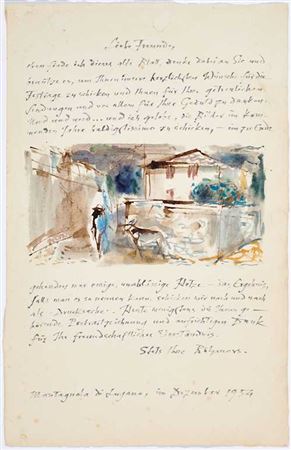 Liebe Freunde,
eben finde ich dieses alte Blatt, denke dabei an Sie und
benütze es, um Ihnen immer herzlichste Wünsche für die
Festtage zu schicken und Ihnen für Ihre gütlichen
Sendungen und vor allem für Ihre Geduld zu danken.
und und und und ich gelobe, die Bilder im kom-
menden Jahre baldigst zu schicken, — ein zu Ende
gehendes nur einige, unablässige Hetze — das Ergebnis,
falls man es so nennen kann, schicken wir nach und nach
als Drucksache. Heute wenigstens die Ihnen ge-
hörende Portraitzeichnung und aufrichtigen Dank
für Ihr freundschaftliches Verständnis.
Stets Ihre
Montagnola di Lugano, im Dezember 1954